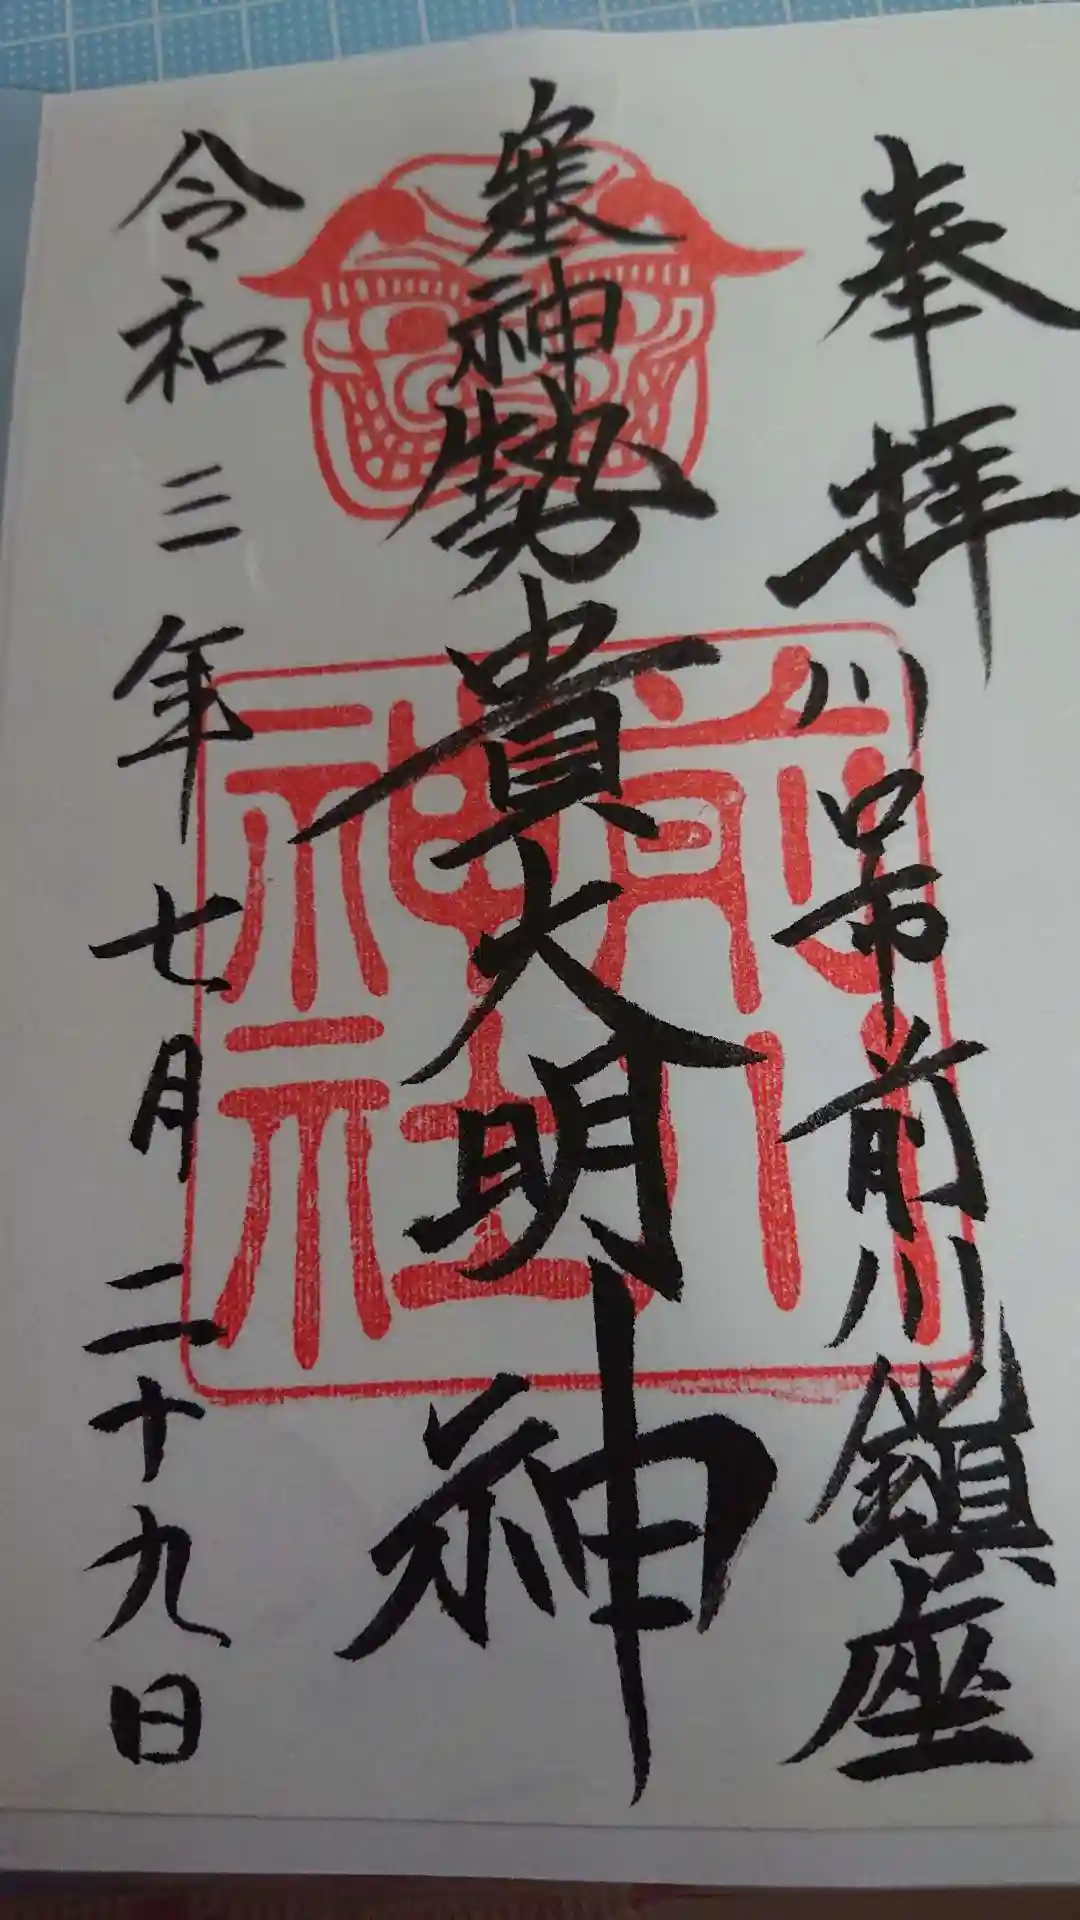 奉拝 川吊前川鎮座
塞神勢貴大明神
令和三年七月二十九日
前川
神社